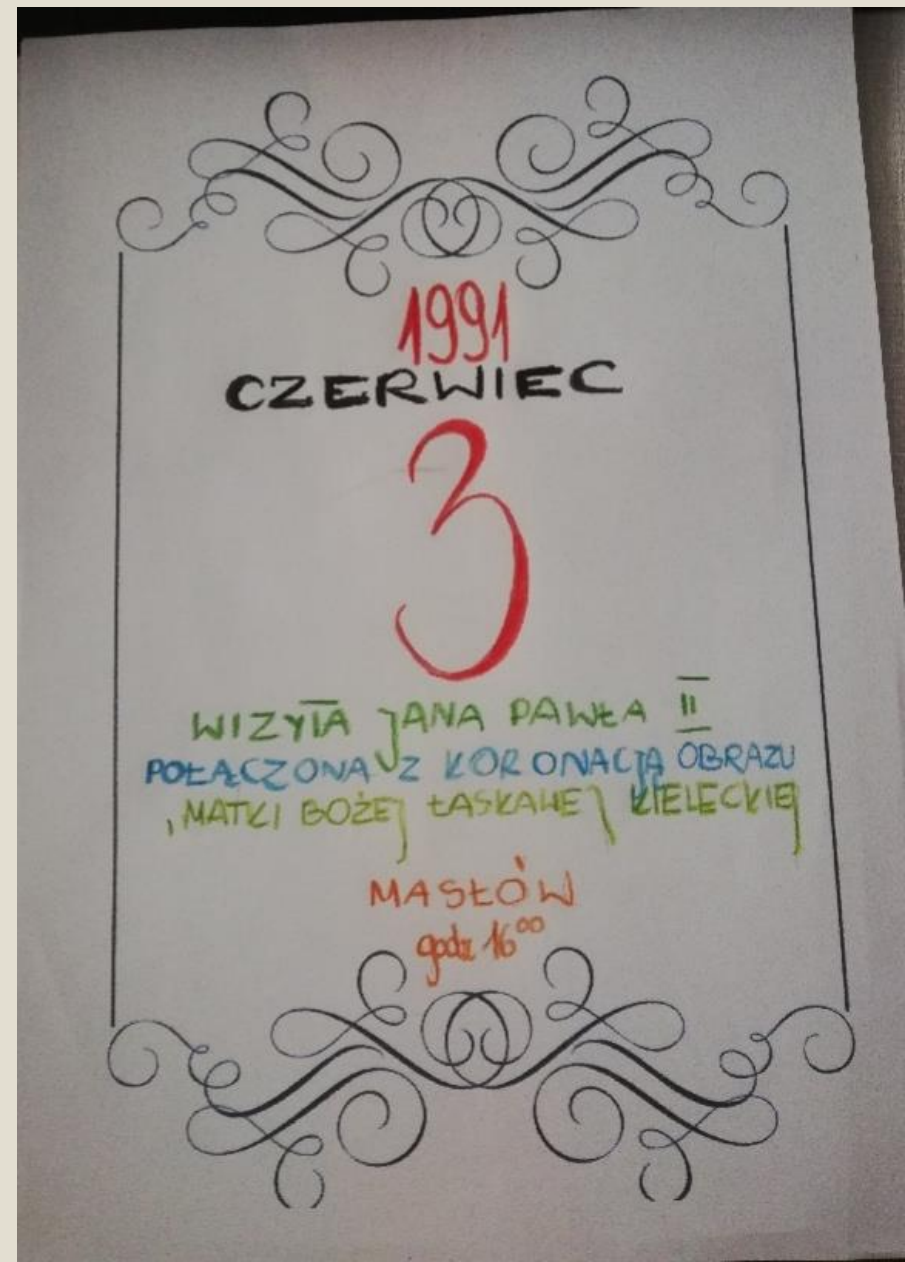 1991
CZERWIEC
3
WIZYTA JANA PAWŁA II
POŁĄCZONA Z KORONACJĄ OBRAZU
,MATKI BOŻEJ ŁASKAWEJ KIELECKIEJ
MASŁÓW
godz 16⁰⁰